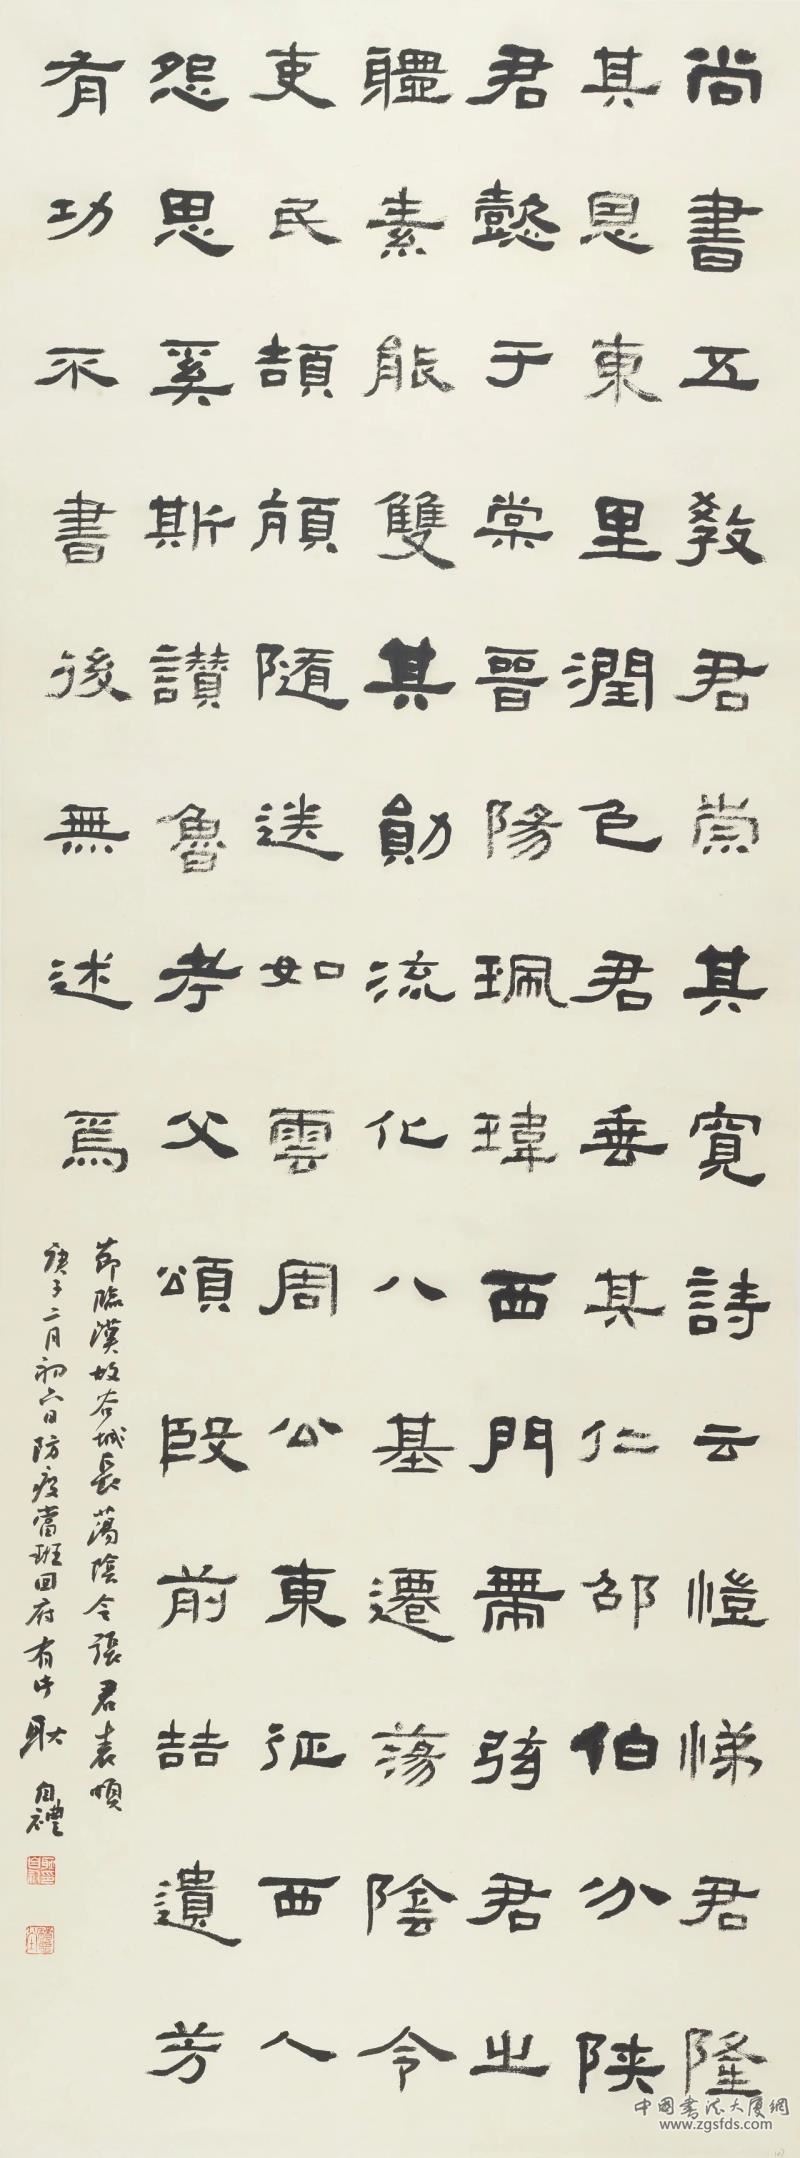 尚書五教君崇其寬詩云愷悌君隆
其恩東里潤色君垂其仁邵伯分陝
君懿于棠晉陽珮瑋西門帶弦君之
體素能雙其勛流化八基遷蕩陰令
吏民頡頏隨送如雲周公東征西人
怨思奚斯讚魯考父頌殷前喆遺芳
有功不書後無述焉
節臨漢故谷城長蕩陰令張君表頌
庚子二月初六日防疫當班回府有時 耿自禮
中国书法大厦網
www.zgsfds.com